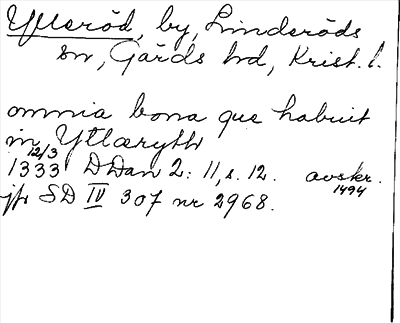 Ytteröd, by, Linderöds
sn, Gärds hd, Krist. l.
omnia bona que habuit
in Ytlæryth
12/3
1333 DDan 2: 11, s. 12. avskr. 1494
jfr SD IV 307 nr 2968.